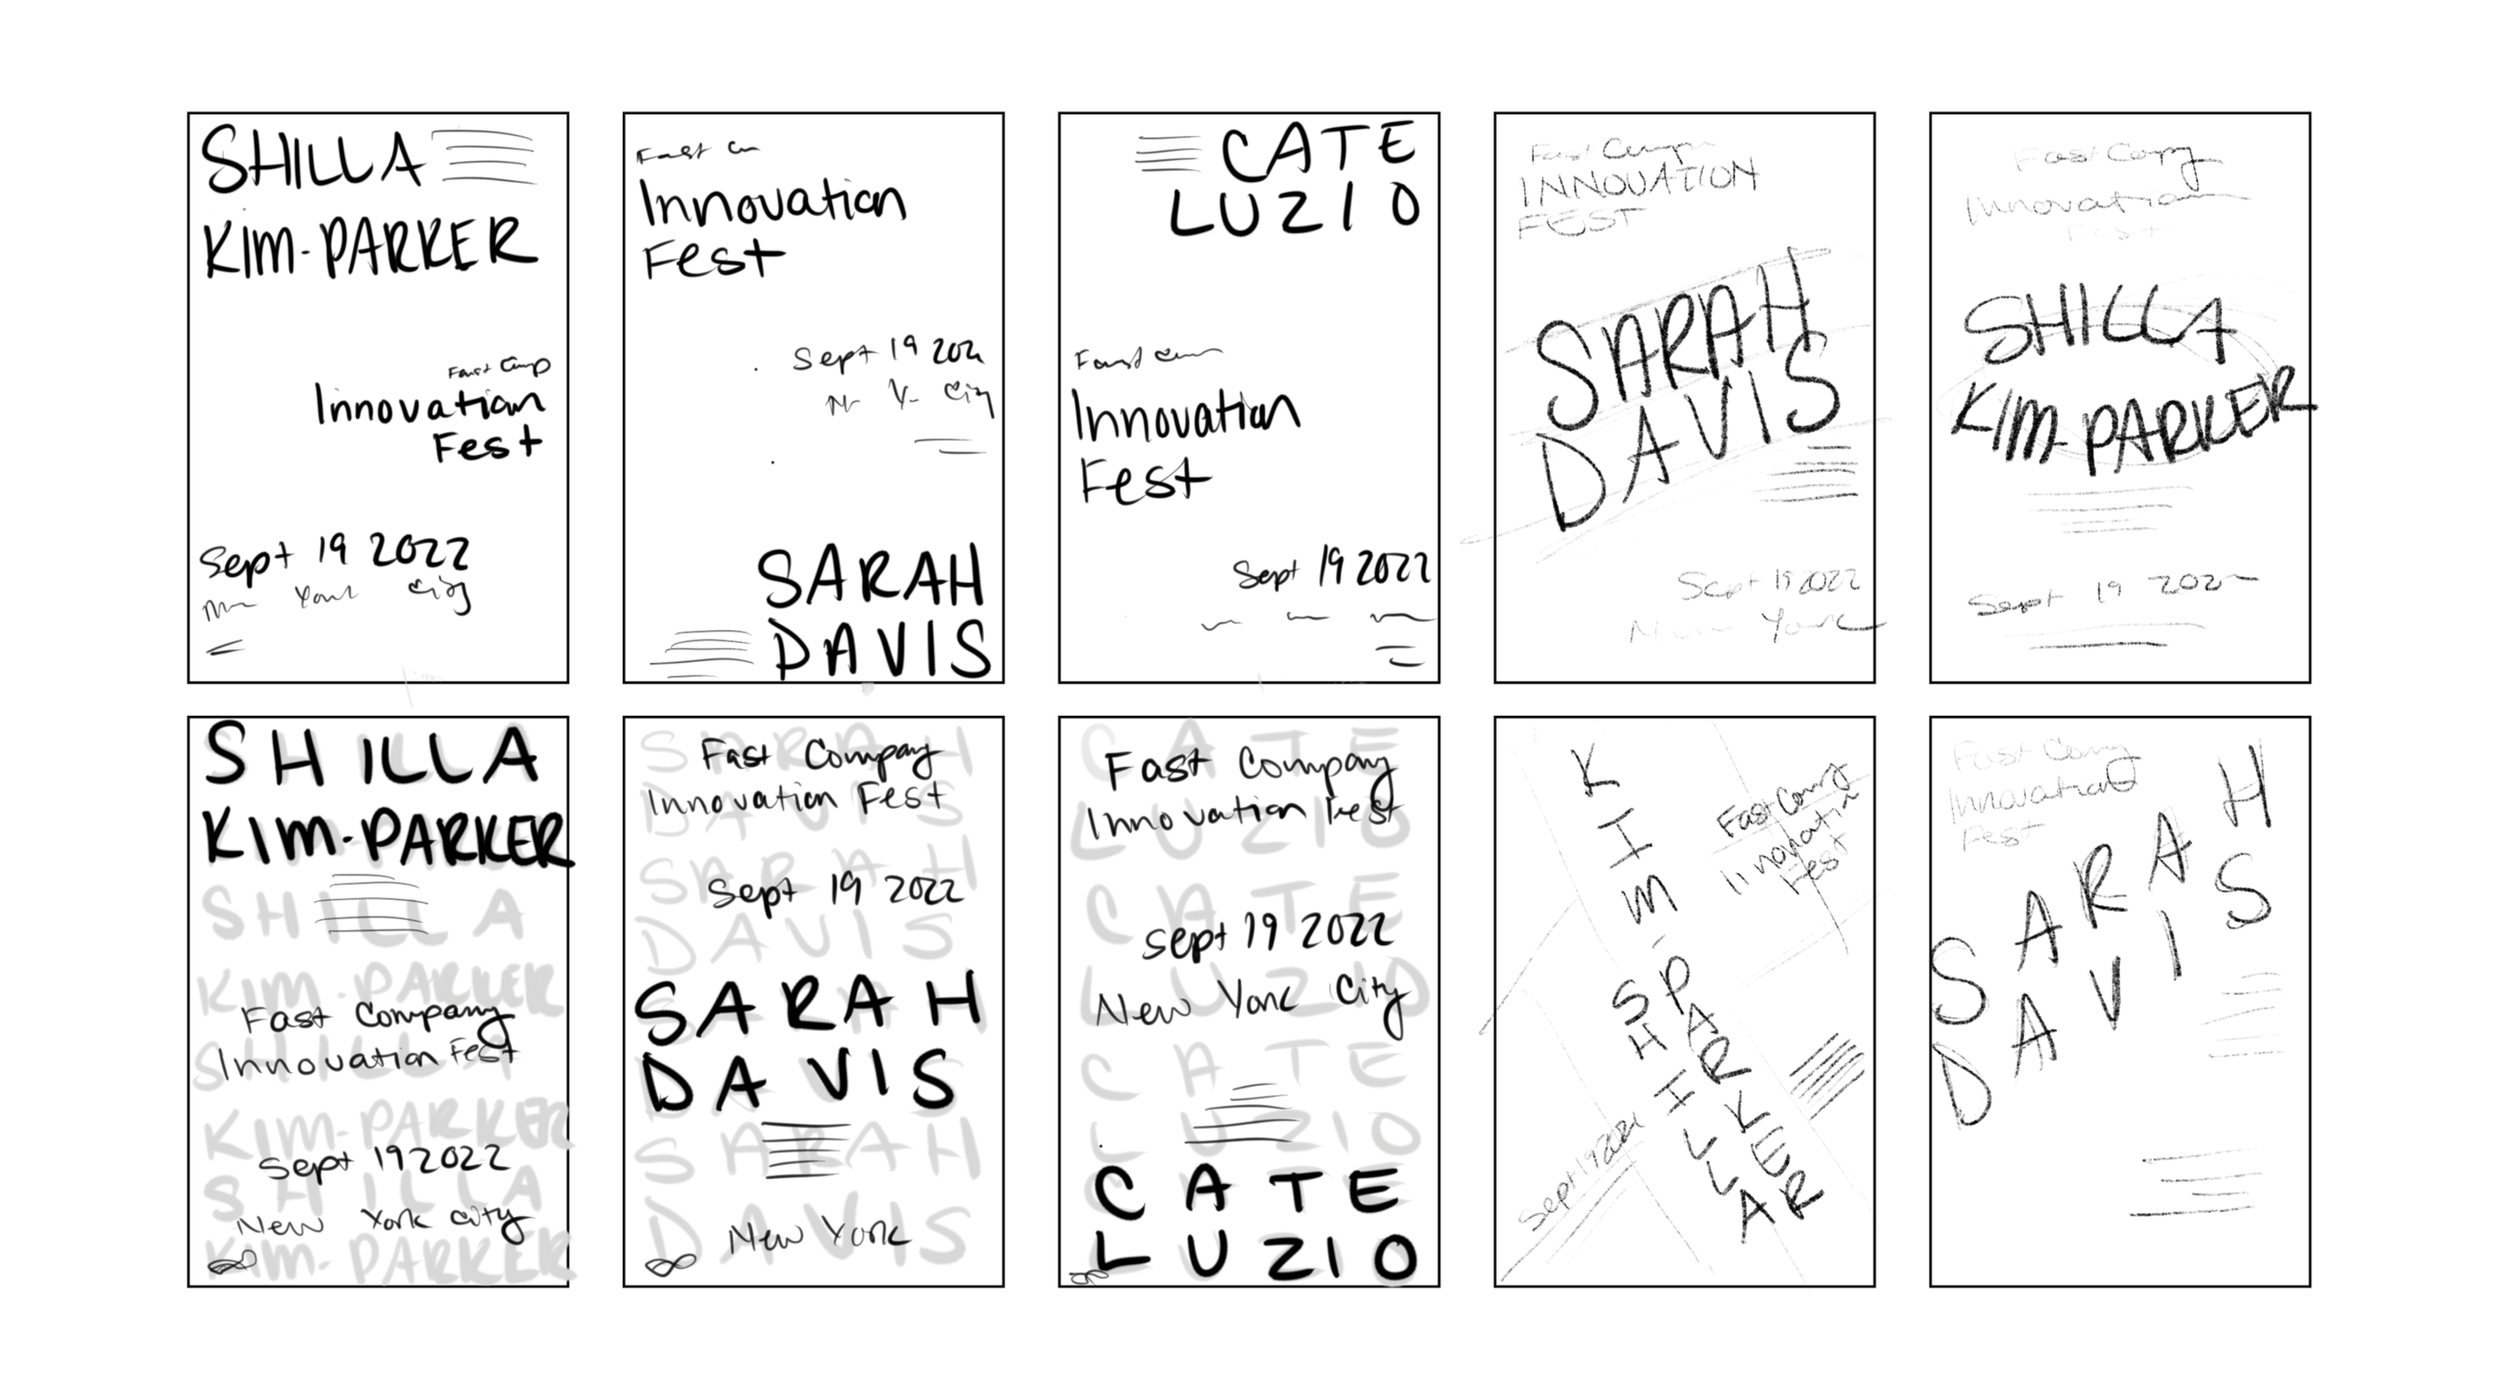 SHILLA
KIM-PARKER
Fast Comp
Innovation
Fest
Sept 19 2022
City
Fast
Innovation
Fest
Sept 19 202
City
SARAH
DAVIS
CATE
LUZIO
Fast
Innovation
Fest
Sept 19 2022
Fast
INNOVATION
FEST
SARAH
DAVIS
Sept 19 2022
New York
Fast Comp
Innovation
Fest
SHILLA
KIM-PARKER
Sept 19 202
SHILLA
KIM-PARKER
SHILLA
KIM-PARKER
Fast Company
Innovation Fest
SHILLA
KIM-PARKER
Sept 19 2022
SHILLA
New York City
KIM-PARKER
SARAH
Fast Company
Innovation Fest
DAVIS
SARAH
Sept 19 2022
DAVIS
SARAH
DAVIS
SARAH
DAVIS
New York
CATE
Fast Company
Innovation Fest
LUZIO
CATE
Sept 19 2022
LUZIO
New York City
CATE
LUZIO
CATE
LUZIO
KIM-PARKER
SHILLA
Fast Comp
Innovation
Fest
Sept 19 202
Fast Comp
Innovation
Fest
SARAH
DAVIS